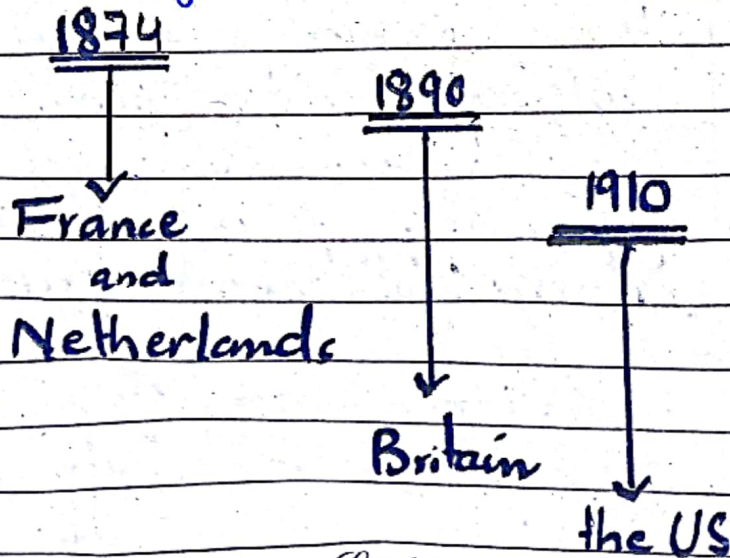 1874
France
and
Netherlands
1890
Britain
1910
the US